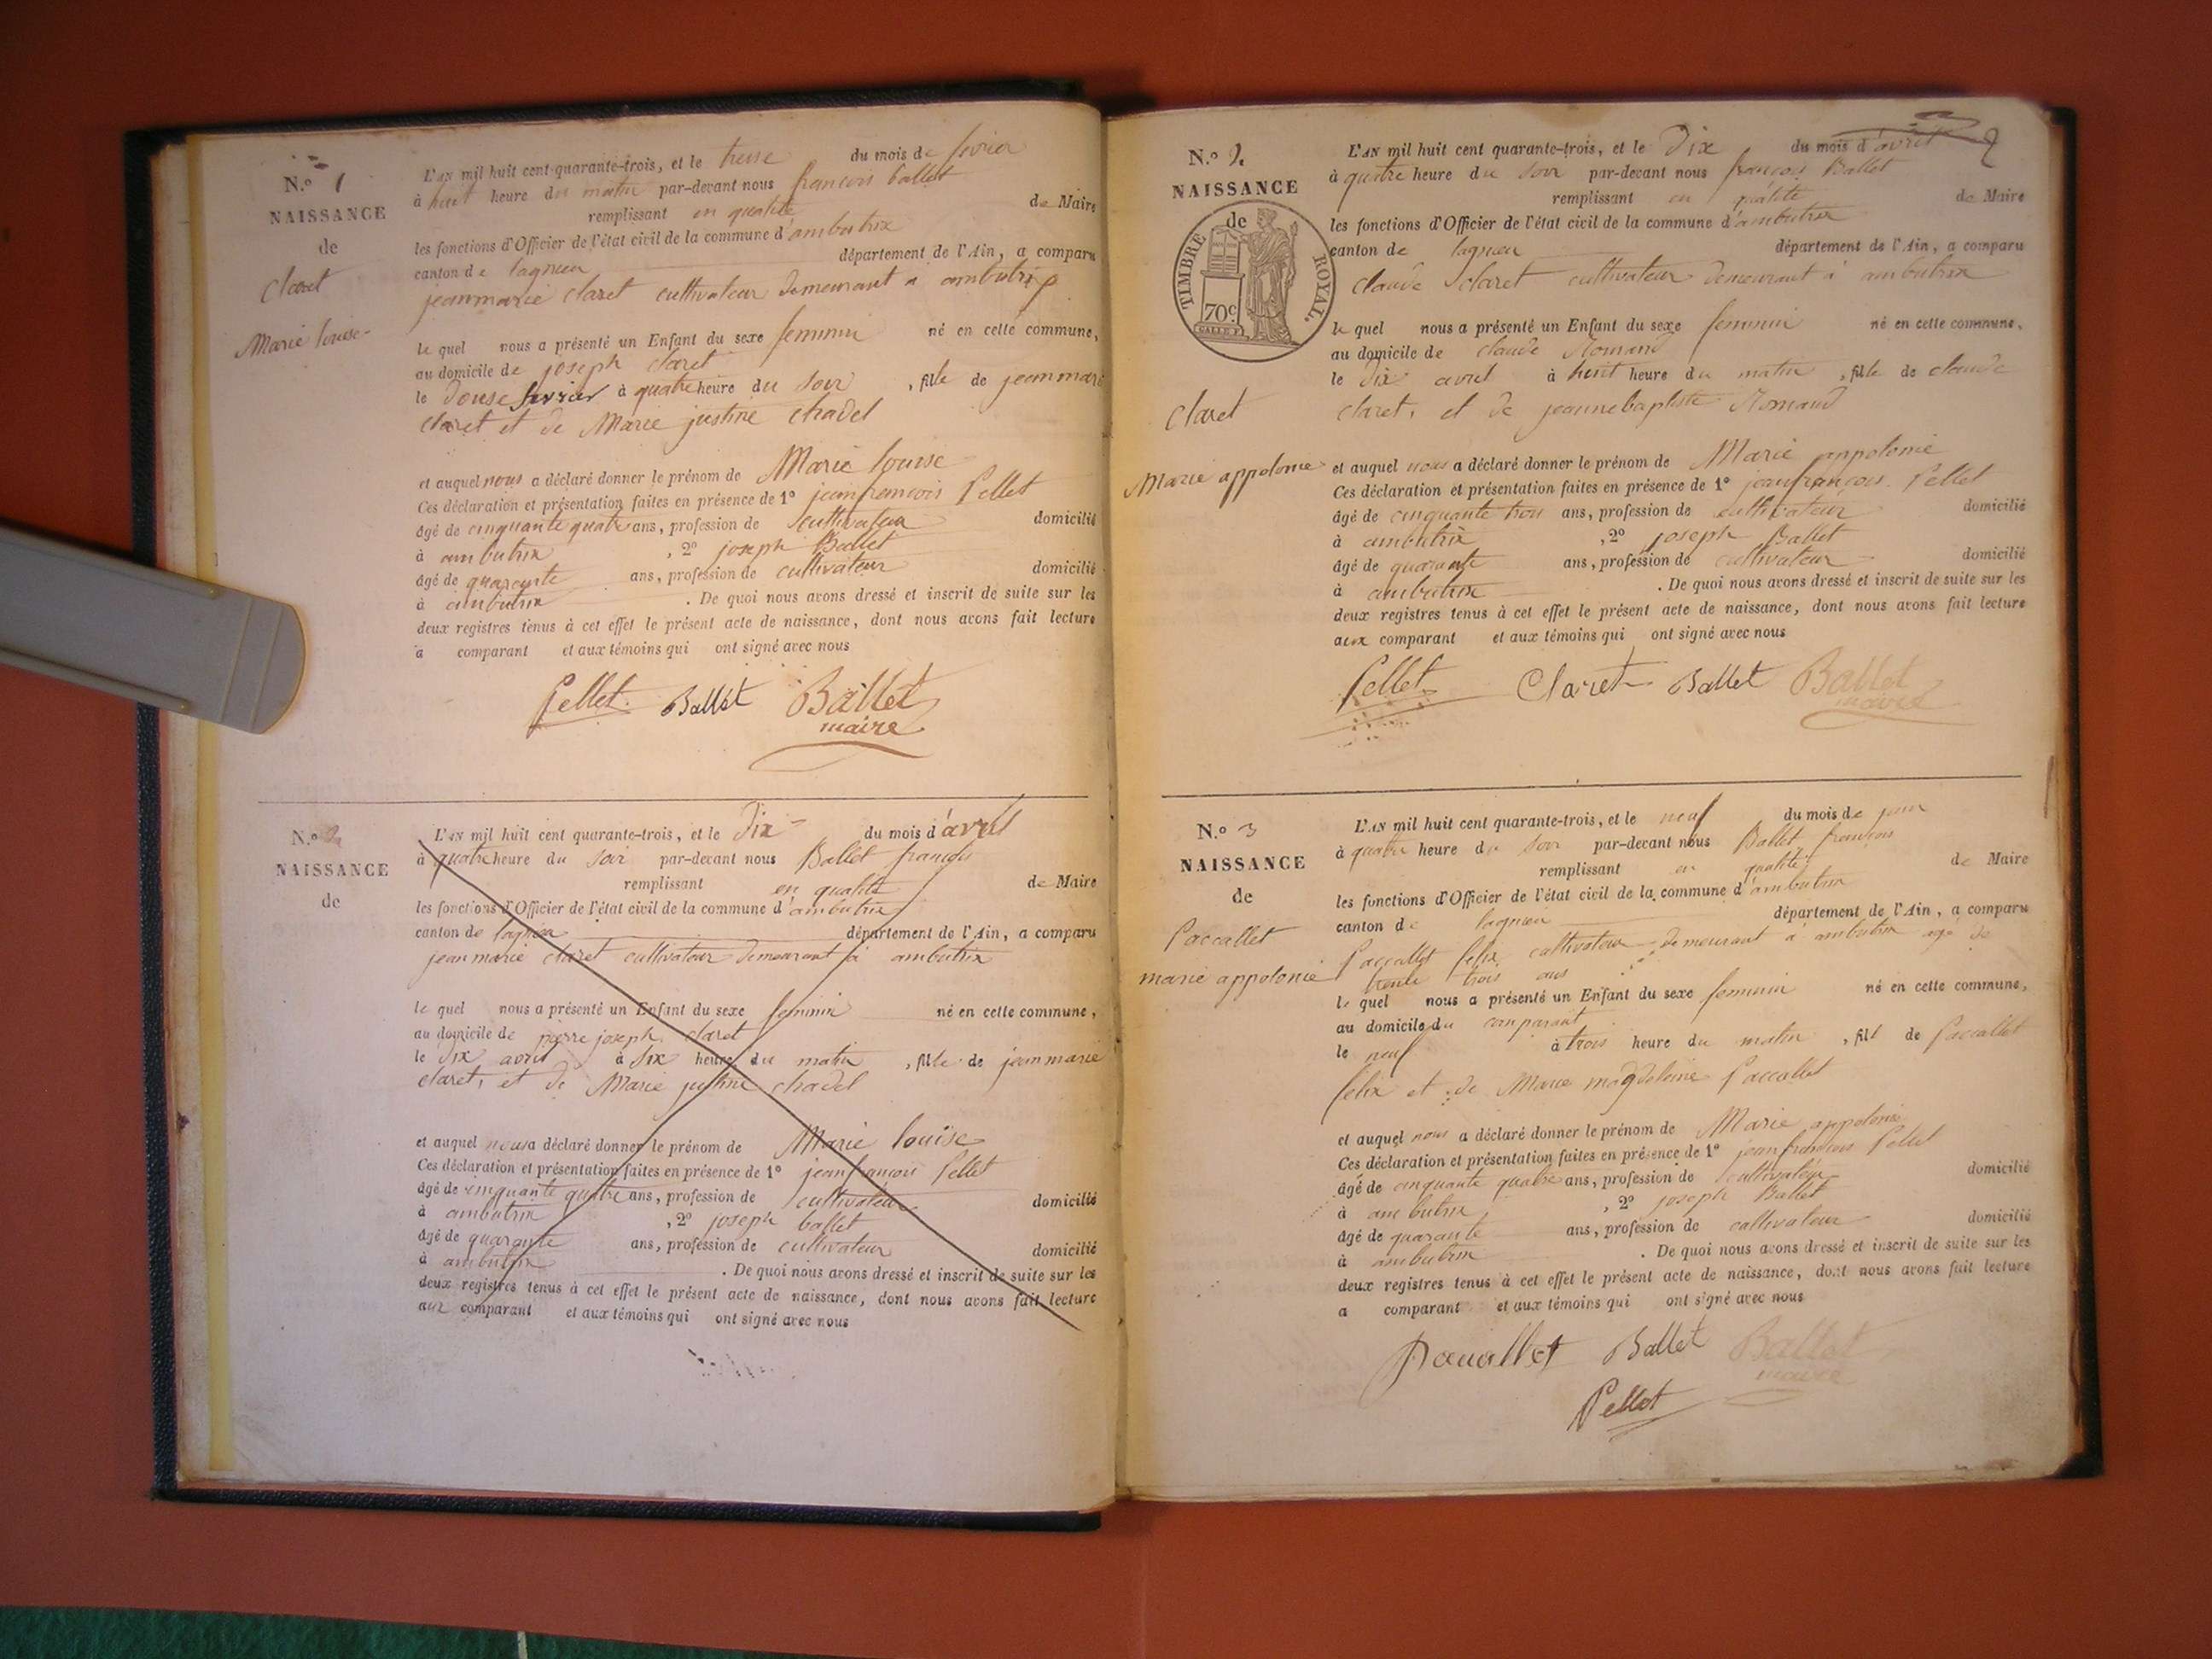 N.º 1
NAISSANCE
de
Claret
Marie louise
L'AN mil huit cent quarante-trois, et le treise du mois de fevrier
à huit heure du matin par-devant nous francois ballet
remplissant en qualité de Maire
les fonctions d'Officier de l'état civil de la commune d'ambutrix
canton de lagnieu département de l'Ain, a comparu
jeanmarie claret cultivateur demeurant a ambutrix
le quel nous a présenté un Enfant du sexe feminin né en cette commune,
au domicile de joseph claret
le douse fevrier à quatre heure du soir, fille de jeanmarie
claret et de Marie justine chadel
et auquel nous a déclaré donner le prénom de Marie louise
Ces déclaration et présentation faites en présence de 1º jeanfrancois Pellet
âgé de cinquante quatre ans, profession de cultivateur domicilié
à ambutrix, 2º joseph Ballet
âgé de quarante ans, profession de cultivateur domicilié
à ambutrix. De quoi nous avons dressé et inscrit de suite sur les
deux registres tenus à cet effet le présent acte de naissance, dont nous avons fait lecture
a comparant et aux témoins qui ont signé avec nous
Pellet Ballet Ballet
maire
N.º 2
NAISSANCE
de
L'AN mil huit cent quarante-trois, et le Dix du mois d'avril
à quatre heure du soir par-devant nous Ballet françois
remplissant en qualité de Maire
les fonctions d'Officier de l'état civil de la commune d'ambutrix
canton de lagnieu département de l'Ain, a comparu
jean marie claret cultivateur demeurant à ambutrix
le quel nous a présenté un Enfant du sexe feminin né en cette commune,
au domicile de pierre joseph claret
le dix avril à dix heure du matin, fille de jeanmarie
claret, et de Marie justine chadel
et auquel nous a déclaré donner le prénom de Marie louise
Ces déclaration et présentation faites en présence de 1º jeanfrançois Pellet
âgé de cinquante quatre ans, profession de cultivateur domicilié
à ambutrix, 2º joseph ballet
âgé de quarante ans, profession de cultivateur domicilié
à ambutrix. De quoi nous avons dressé et inscrit de suite sur les
deux registres tenus à cet effet le présent acte de naissance, dont nous avons fait lecture
aux comparant et aux témoins qui ont signé avec nous
2
N.º 2
NAISSANCE
de
TIMBRE ROYAL.
70c
Claret
Marie appolonie
L'AN mil huit cent quarante-trois, et le Dix du mois d'avril
à quatre heure du soir par-devant nous françois Ballet
remplissant en qualité de Maire
les fonctions d'Officier de l'état civil de la commune d'ambutrix
canton de lagnieu département de l'Ain, a comparu
claude claret cultivateur demeurant à ambutrix
le quel nous a présenté un Enfant du sexe feminin né en cette commune,
au domicile de claude Romand
le dix avril à huit heure du matin, fille de claude
claret, et de jeannebaptiste Romand
et auquel nous a déclaré donner le prénom de Marie appolonie
Ces déclaration et présentation faites en présence de 1º jeanfrançois Pellet
âgé de cinquante trois ans, profession de cultivateur domicilié
à ambutrix, 2º joseph Ballet
âgé de quarante ans, profession de cultivateur domicilié
à ambutrix. De quoi nous avons dressé et inscrit de suite sur les
deux registres tenus à cet effet le présent acte de naissance, dont nous avons fait lecture
aux comparant et aux témoins qui ont signé avec nous
Pellet Claret Ballet Ballet
maire
N.º 3
NAISSANCE
de
Paccallet
marie appolonie
L'AN mil huit cent quarante-trois, et le neuf du mois de juin
à quatre heure du soir par-devant nous Ballet francois
remplissant en qualité de Maire
les fonctions d'Officier de l'état civil de la commune d'ambutrix
canton de lagnieu département de l'Ain, a comparu
Paccallet felix cultivateur demeurant à ambutrix agé de
trente trois ans
le quel nous a présenté un Enfant du sexe feminin né en cette commune,
au domicile du comparant
le neuf à trois heure du matin, fill de Paccallet
felix et de Marie magdeleine Paccallet
et auquel nous a déclaré donner le prénom de Marie appolonie
Ces déclaration et présentation faites en présence de 1º jeanfrancois Pellet
âgé de cinquante quatre ans, profession de cultivateur domicilié
à ambutrix, 2º joseph Ballet
âgé de quarante ans, profession de cultivateur domicilié
à ambutrix. De quoi nous avons dressé et inscrit de suite sur les
deux registres tenus à cet effet le présent acte de naissance, dont nous avons fait lecture
a comparant et aux témoins qui ont signé avec nous
Pacallet Ballet Ballet
maire
Pellet